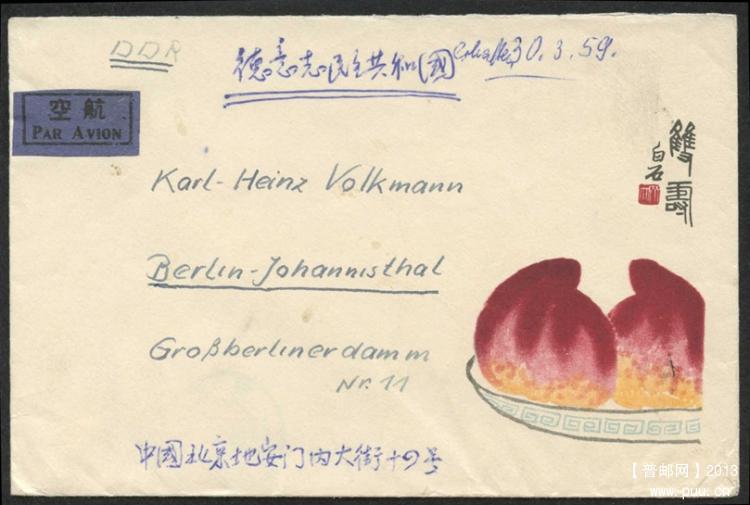 DDR
德意志民主共和國
30.3.59.
空航
PAR AVION
雙壽
白石
Karl-Heinz Volkmann
Berlin-Johannisthal
Großberlinerdamm
Nr. 11
中國北京地安门内大街十四号
【普邮网】2013
www.puu.cn